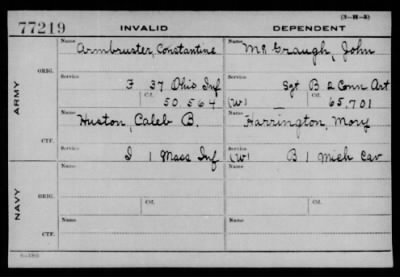 (3-H-8)
77219 INVALID DEPENDENT
Name Name
Armbruster, Constantine McGraugh, John
ORIG.
Service Service
F 37 Ohio Inf Sgt B 2 Conn Art
Ctf. Ctf.
50 564 (W) — 65,701
ARMY
Name Name
Huston, Caleb B. Harrington, Mary
CTF.
Service Service
I 1 Mass Inf (W) B 1 Mich Cav
Name Name
ORIG.
Service Ctf. Service Ctf.
NAVY
Name Name
CTF.